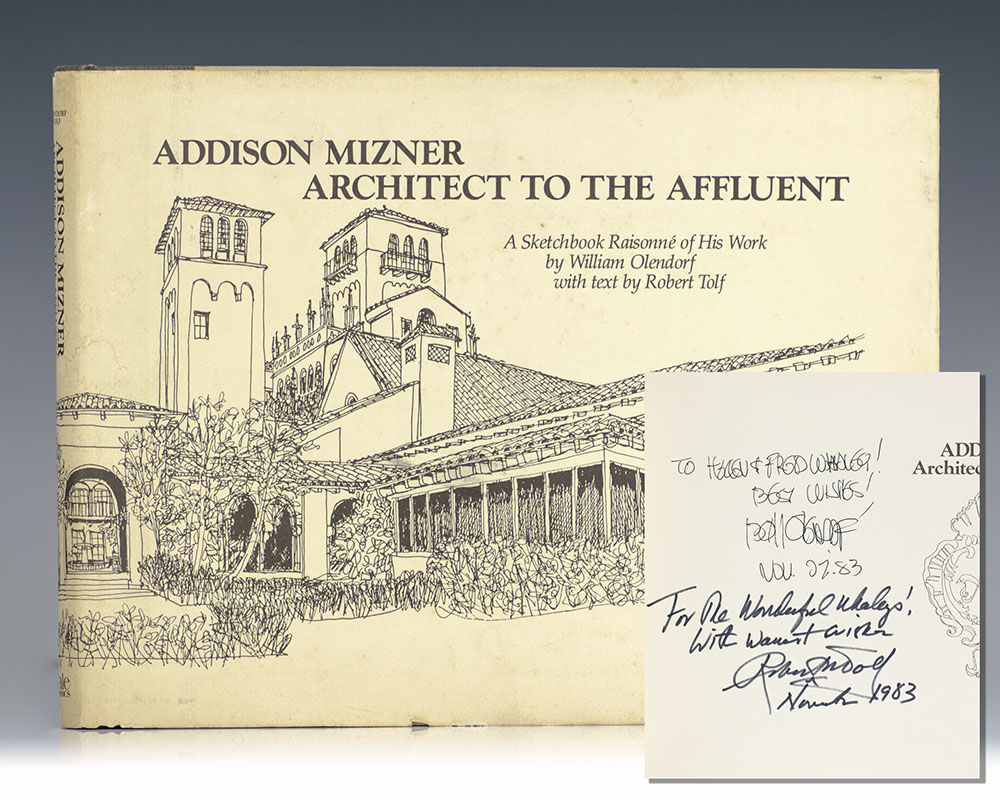 ADDISON MIZNER
ARCHITECT TO THE AFFLUENT
A Sketchbook Raisonné of His Work
by William Olendorf
with text by Robert Tolf
ADDISON MIZNER
TO HELEN & FRED WHALEY!
BEST WISHES!
NOV. 27.83
For The Wonderful Whaleys!
With Warmest wishes
1983
ADD
Architec